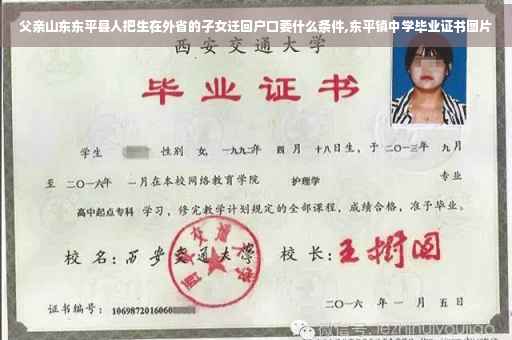 父亲山东东平县人把生在外省的子女迁回户口要什么条件,东平镇中学毕业证书图片
西安交通大学
毕业证书
学生 性别 女, 一九九二年 四月 十八日生, 于 二〇一三年 九月
至 二〇一六年 一月在本校网络教育学院 护理学 专业
高中起点专科 学习, 修完教学计划规定的全部课程, 成绩合格, 准予毕业。
校名: 西安交通大学 校长: 王树国
西安交通大学
证书编号: 1069872016060
二〇一六年 一月 五日
微信号: jiezhinuiyoujiao